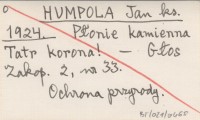 HUMPOLA Jan ks.
1924. Płonie kamienna
Tatr korona! — Głos
Zakop. 2, na 33.
Ochrona przyrody.